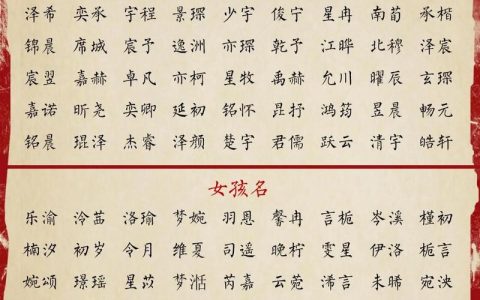 泽希 奕承 宇程 景琛 少宇 俊宁 星冉 南荀 承楷
锦晨 席城 宸予 逸洲 亦琛 乾予 江晔 北穆 泽宸
宸翌 嘉赫 卓凡 亦柯 星牧 禹赫 允川 曜辰 玄琛
嘉诺 昕尧 奕卿 延初 铭怀 昆抒 鸿筠 昱晨 畅元
铭晨 琨泽 杰睿 泽颜 楚宇 君儒 跃云 清宇 皓轩
女孩名
乐渝 泠茁 洛瑜 梦婉 羽恩 馨冉 言栀 岑溪 槿初
楠汐 初岁 令月 维夏 司遥 晚柠 雯星 伊洛 栀言
婉颂 璟瑶 星苡 梦湉 芮嘉 云菀 浠言 未晞 宛泱